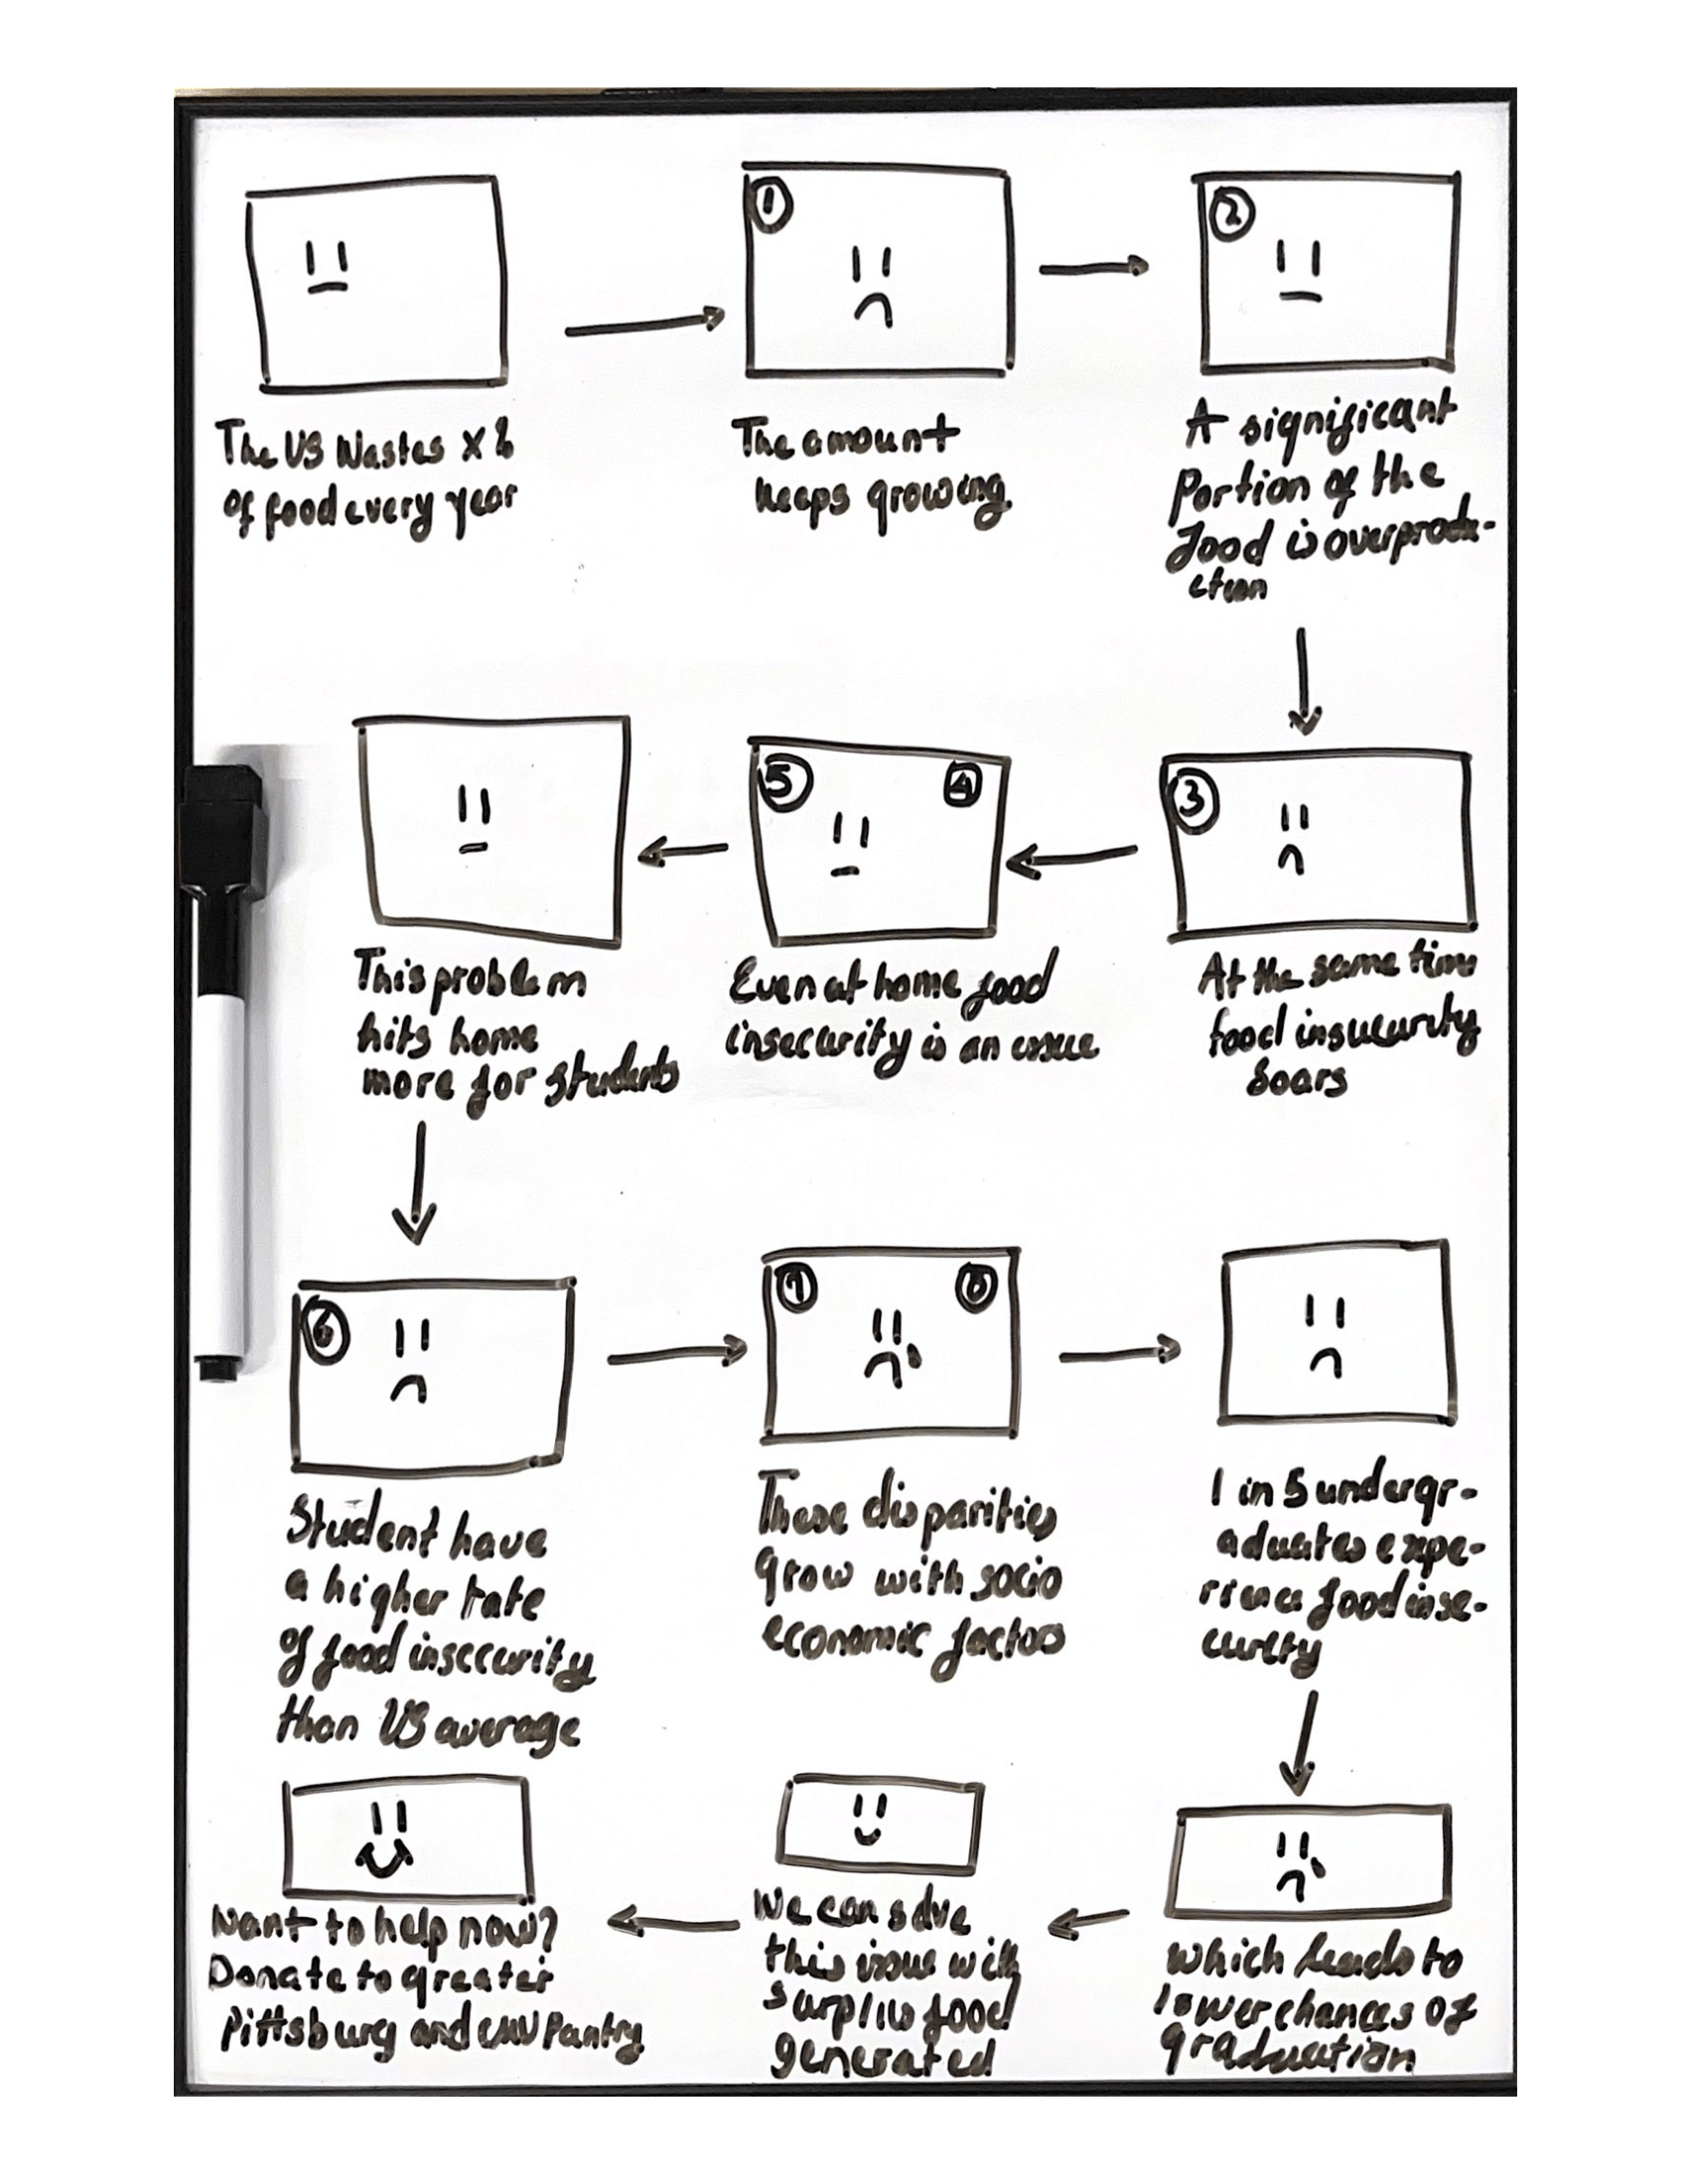 1
2
The US Wastes X %
of food every year
The amount
keeps growing.
A significant
Portion of the
food is overprodu-
ction
5
4
3
This problem
hits home
more for students
Even at home food
insecurity is an issue
At the same time
food insucurity
Soars
6
7
8
Student have
a higher rate
of food insecurity
than US average
These disparities
grow with socio
economic factors
1 in 5 undergr-
aduates expe-
rience food inse-
curity
Want to help now?
Donate to greater
Pittsburg and CMU Pantry
We can solve
this issue with
surplus food
generated
which leads to
lower chances of
graduation